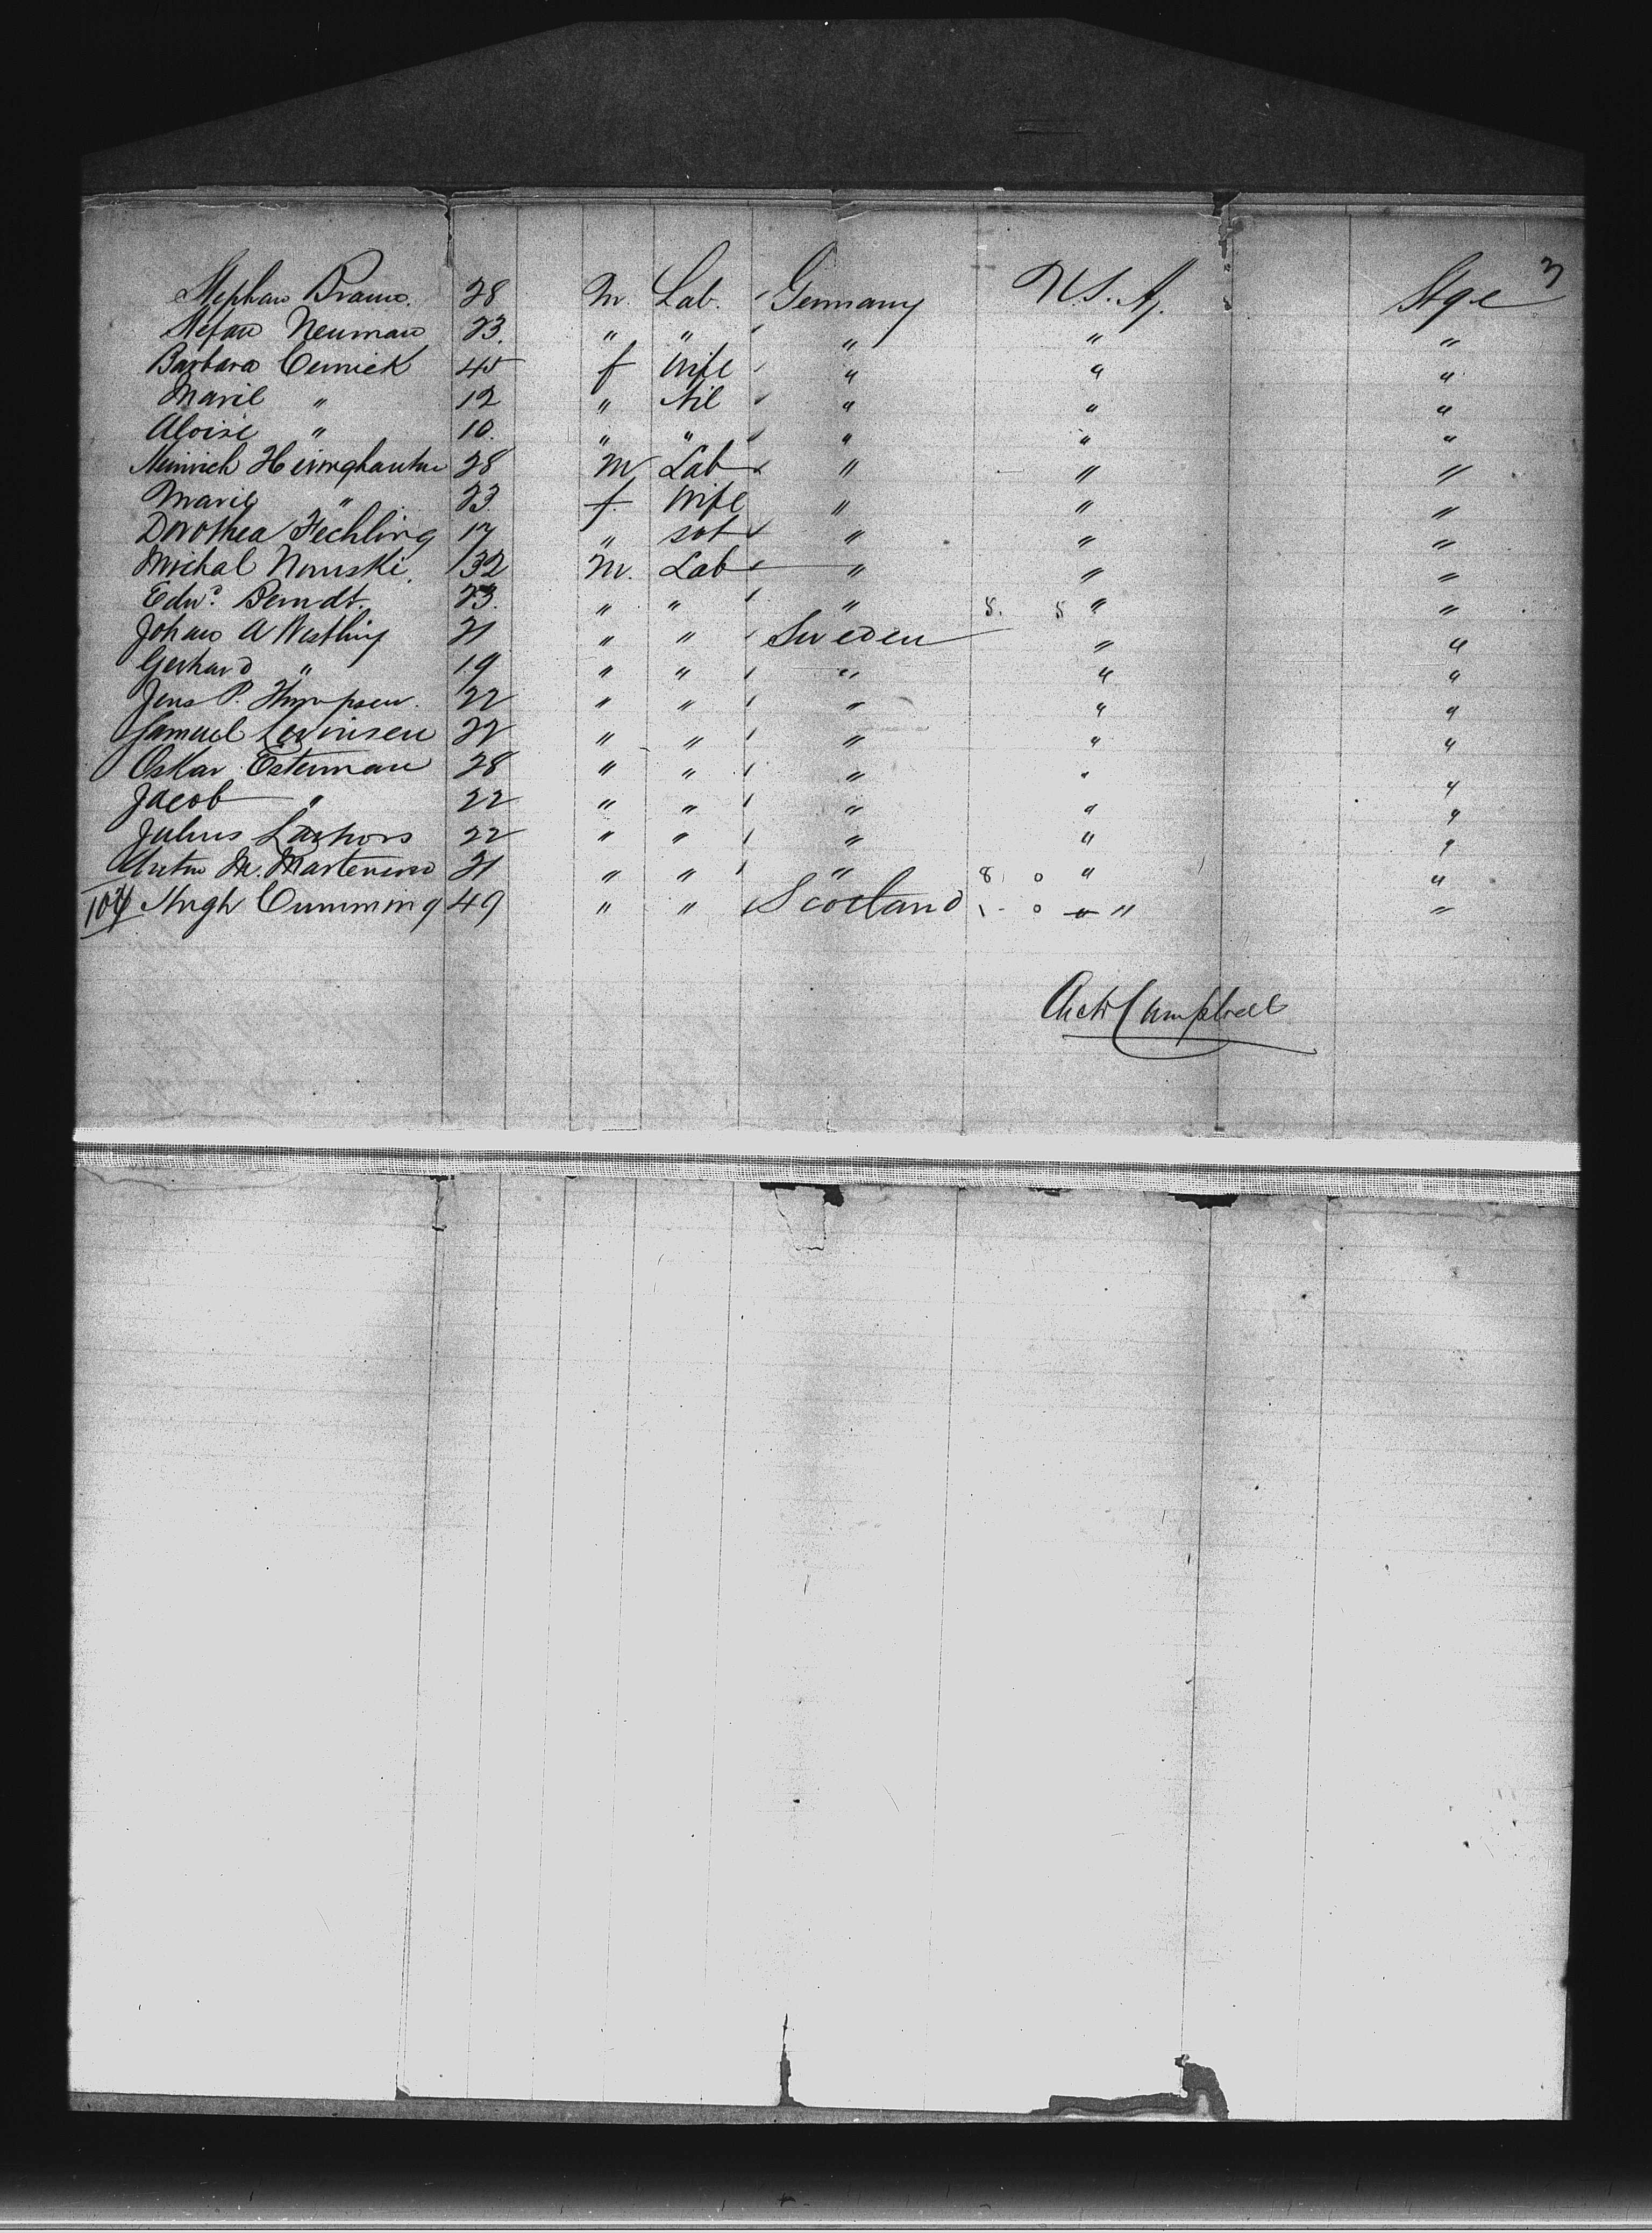 3
Stephan Braun. 28 M. Lab. Germany U.S.A. Stge
Stefan Neuman 23. " " " " "
Barbara Cernick 45 f Wife " " "
Marie " 12 " Nil " " "
Aloise " 10. " " " " "
Heinrich 28 M Lab " " "
Marie " 23. f Wife " " "
Dorothea Fechling 17 " " " "
Michal Nowski. 32 M. Lab " " "
Edwd. Berndt. 23. " " " 8. 8 " "
Johan A Westling 21 " " Sweden " "
Gerhard " 19 " " " " "
Jens P. 22 " " " " "
Samuel Levinsen 22 " " " " "
Oskar Esterman 28 " " " " "
Jacob " 22 " " " " "
Julius 22 " " " " "
Anton M. 21 " " " 8 0 " "
104 Hugh Cumming 49 " " Scotland 1 - 0 " "
Archd Campbell